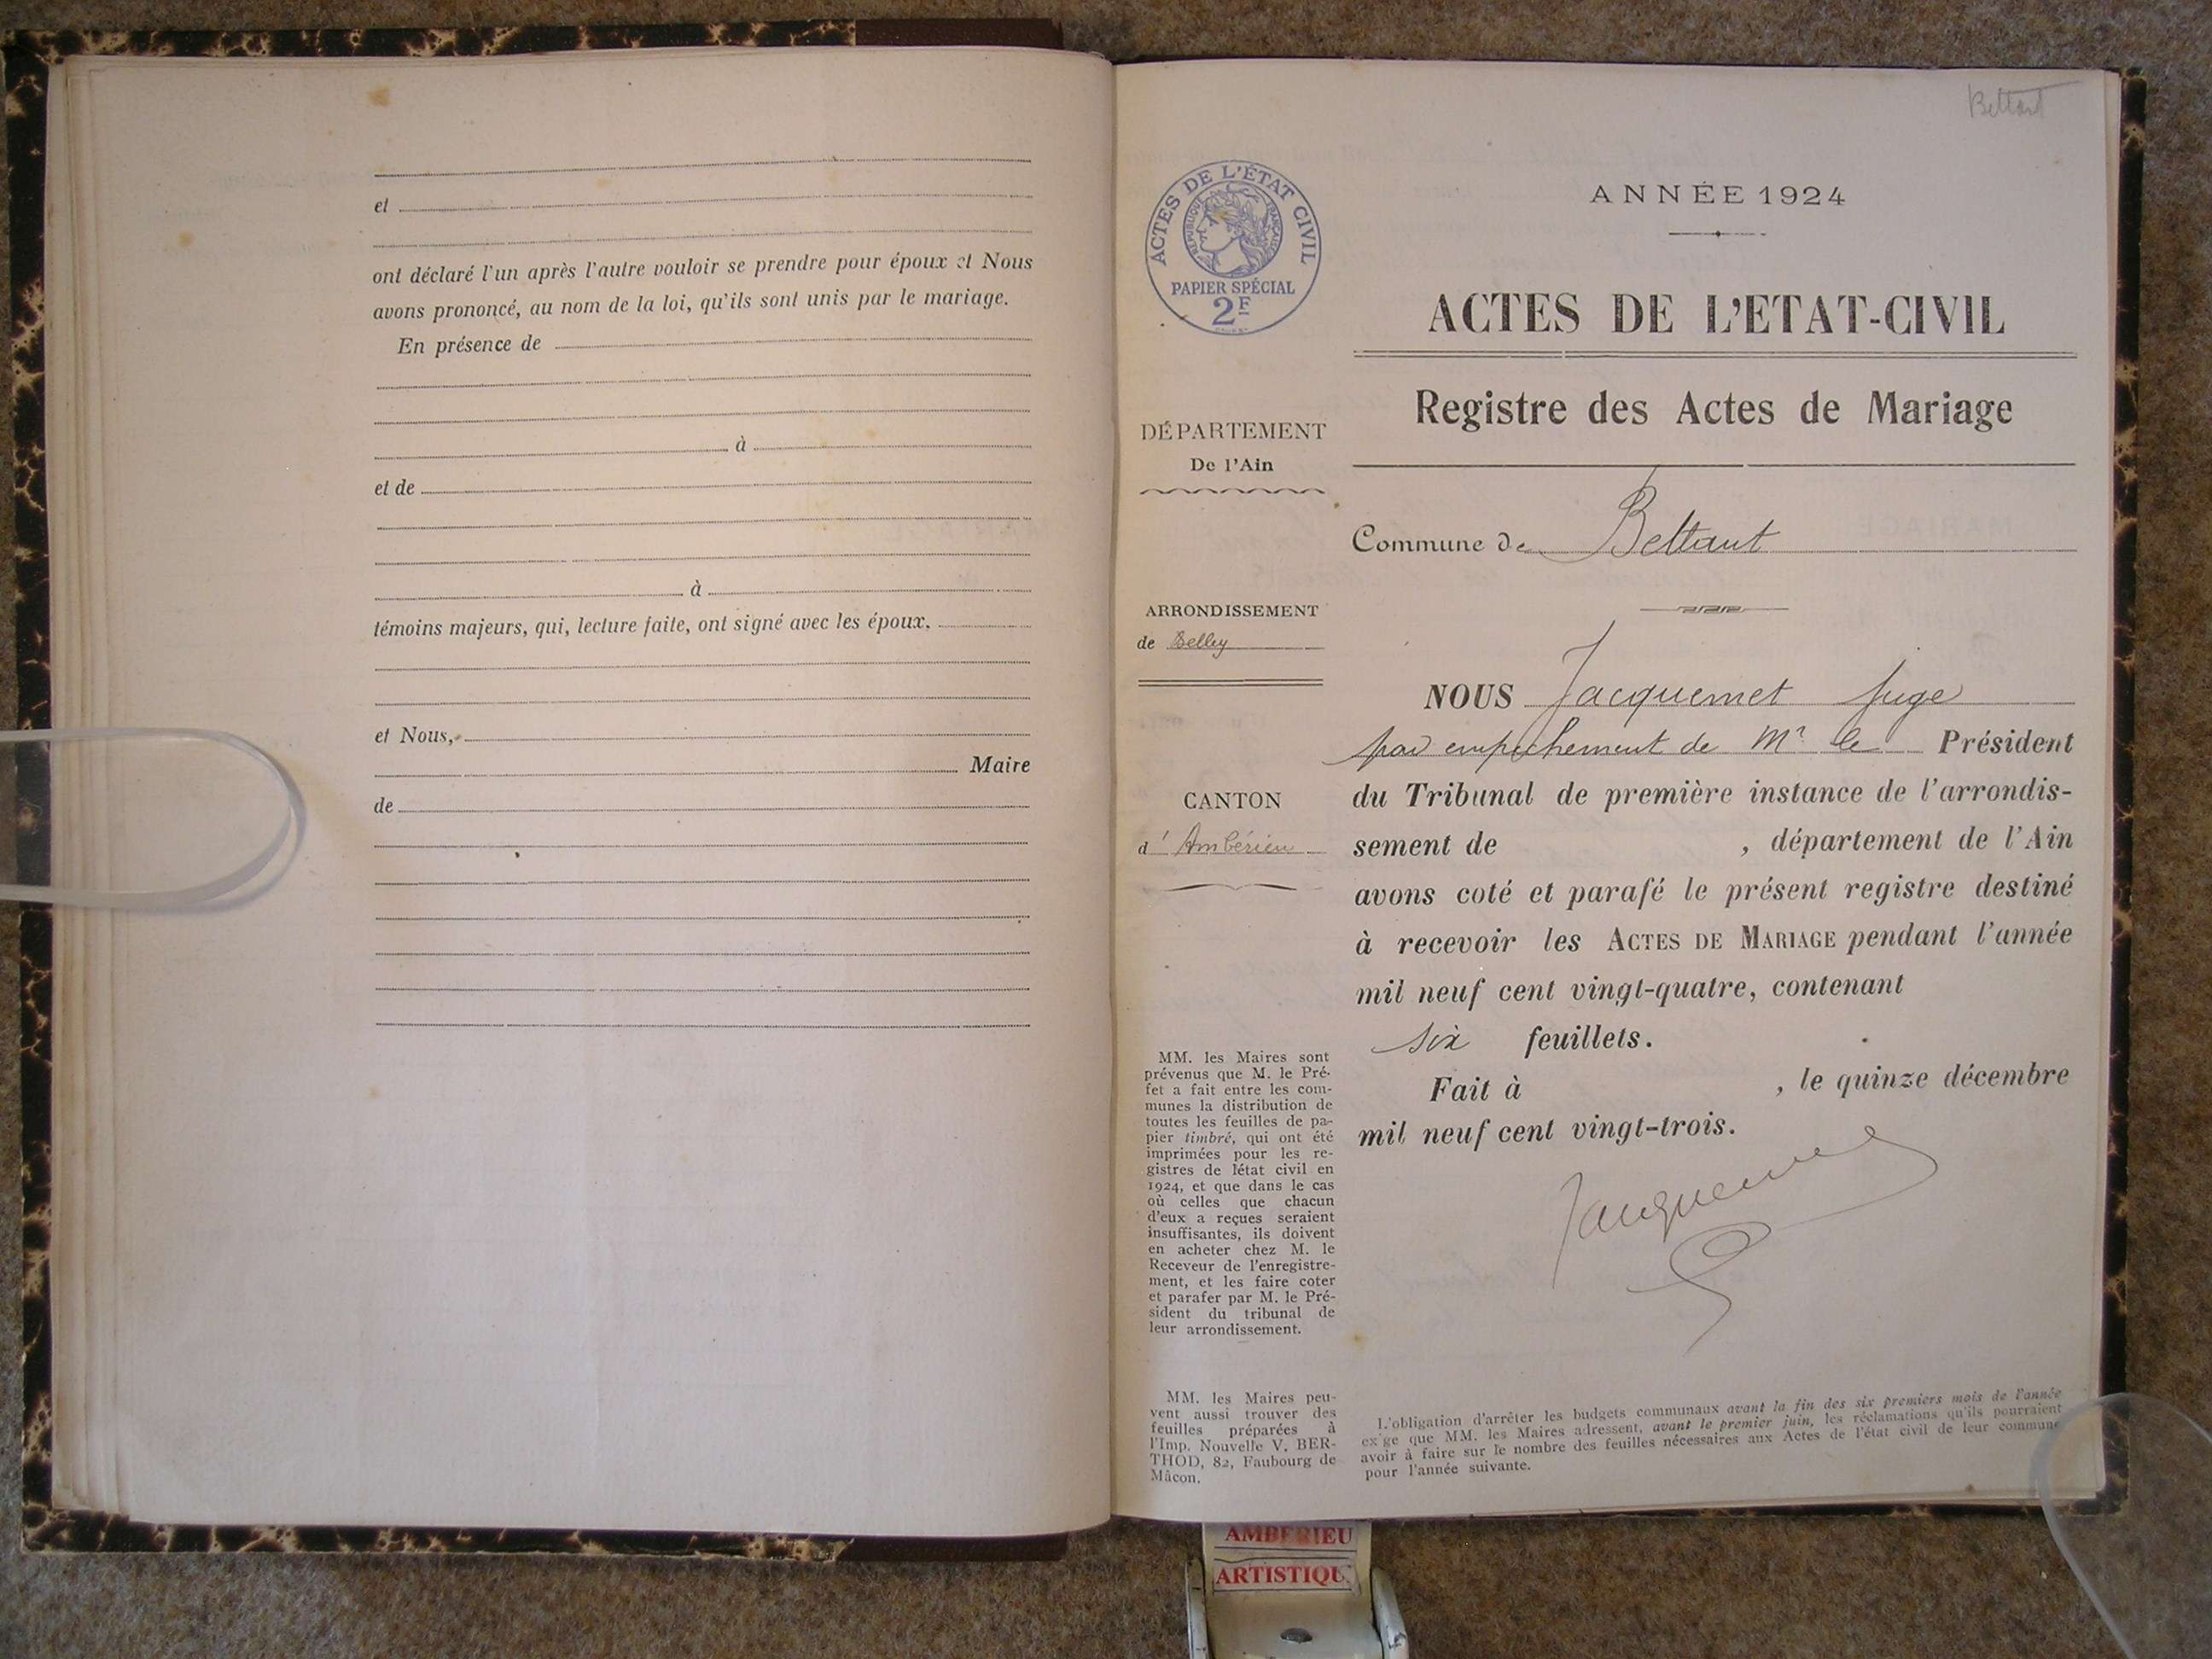 et
ont déclaré l'un après l'autre vouloir se prendre pour époux et Nous
avons prononcé, au nom de la loi, qu'ils sont unis par le mariage.
En présence de
à
et de
à
témoins majeurs, qui, lecture faite, ont signé avec les époux.
et Nous,
Maire
de
Bettant
ACTES DE L'ÉTAT CIVIL
RÉPUBLIQUE FRANÇAISE
PAPIER SPÉCIAL
2F
DÉPARTEMENT
De l'Ain
ARRONDISSEMENT
de Belley
CANTON
d' Ambérieu
MM. les Maires sont
prévenus que M. le Pré-
fet a fait entre les com-
munes la distribution de
toutes les feuilles de pa-
pier timbré, qui ont été
imprimées pour les re-
gistres de létat civil en
1924, et que dans le cas
où celles que chacun
d'eux a reçues seraient
insuffisantes, ils doivent
en acheter chez M. le
Receveur de l'enregistre-
ment, et les faire coter
et parafer par M. le Pré-
sident du tribunal de
leur arrondissement.
MM. les Maires peu-
vent aussi trouver des
feuilles préparées à
l'Imp. Nouvelle V. BER-
THOD, 82, Faubourg de
Mâcon.
ANNÉE 1924
ACTES DE L'ETAT-CIVIL
Registre des Actes de Mariage
Commune de Bettant
NOUS Jacquemet juge
par empêchement de Mr le Président
du Tribunal de première instance de l'arrondis-
sement de , département de l'Ain
avons coté et parafé le présent registre destiné
à recevoir les ACTES DE MARIAGE pendant l'année
mil neuf cent vingt-quatre, contenant
six feuillets.
Fait à , le quinze décembre
mil neuf cent vingt-trois.
Jacquemet
L'obligation d'arrêter les budgets communaux avant la fin des six premiers mois de l'année
ex'ge que MM. les Maires adressent, avant le premier juin, les réclamations qu'ils pourraient
avoir à faire sur le nombre des feuilles nécessaires aux Actes de l'état civil de leur commune
pour l'année suivante.
AMBERIEU
ARTISTIQU